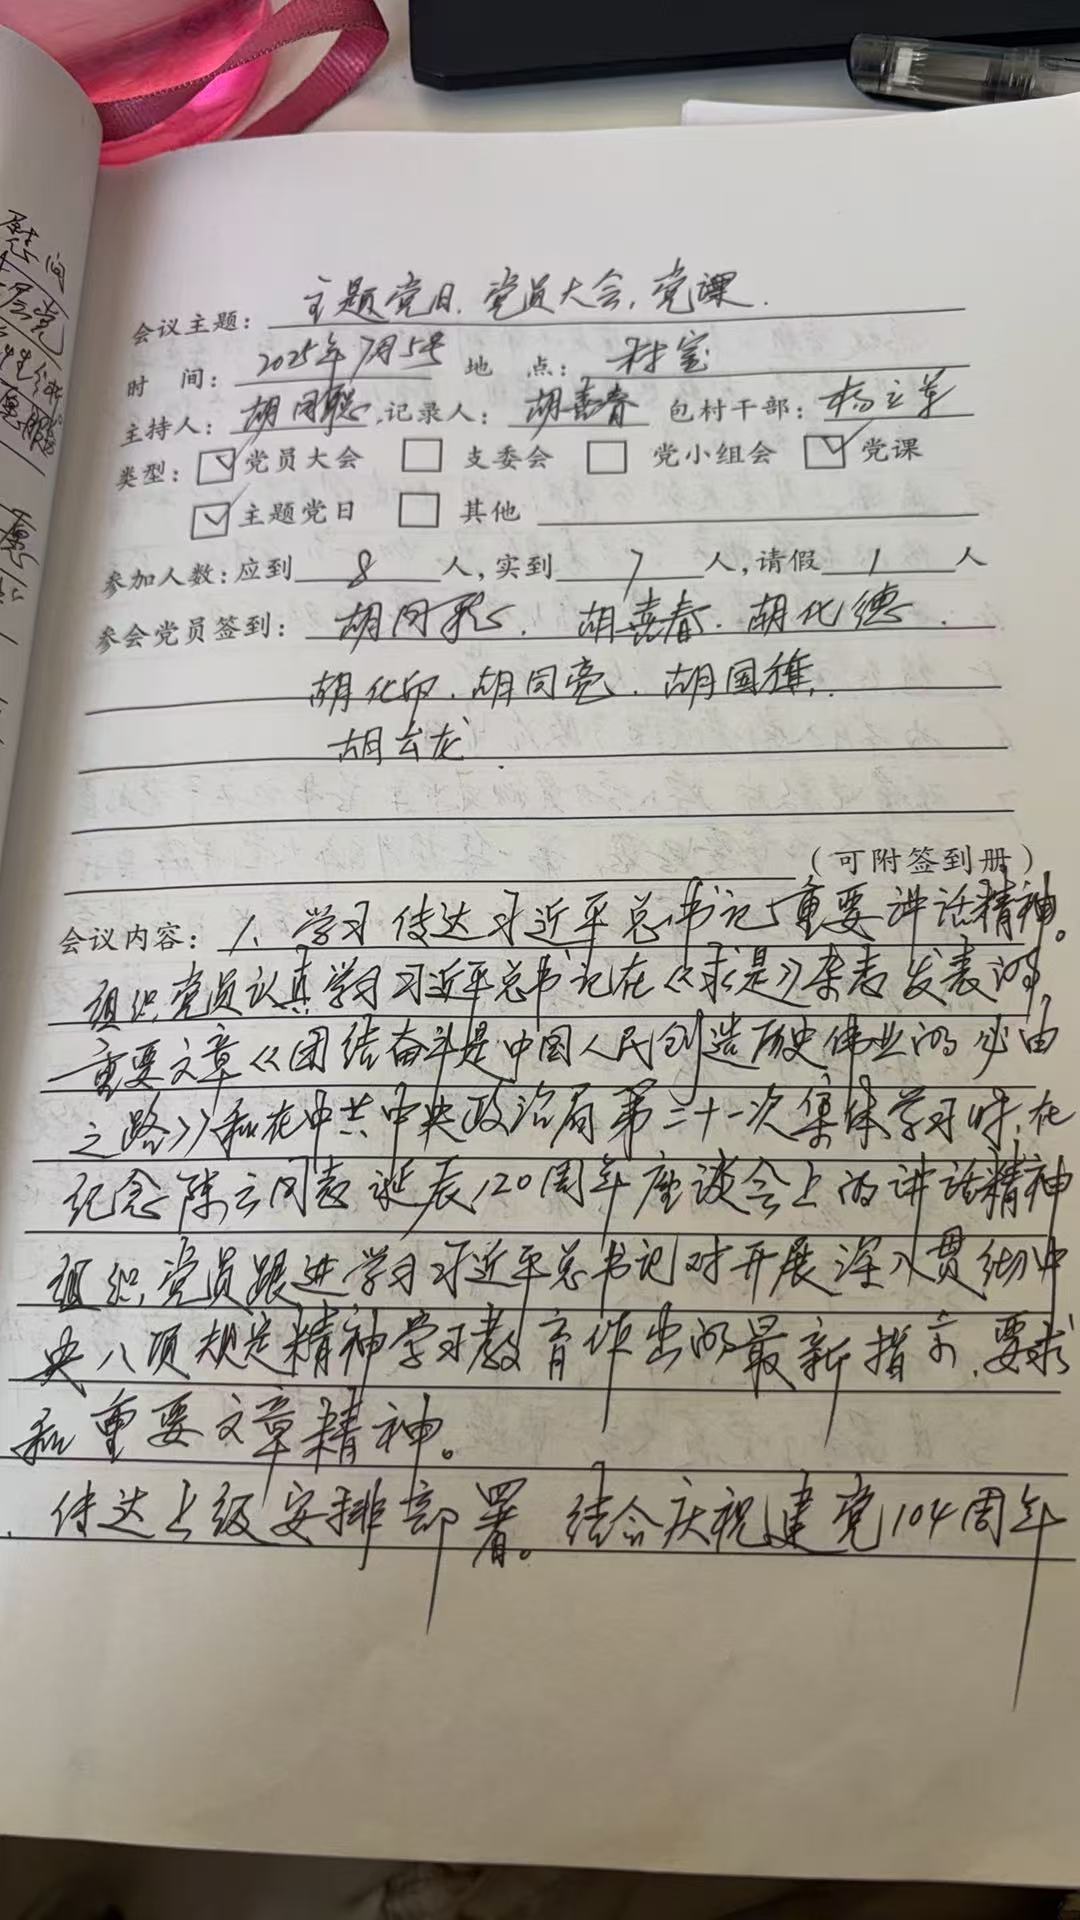 会议主题： 主题党日、党员大会、党课.
时 间： 2025年7月5号 地 点： 村室
主持人： 胡同聪 记录人： 胡喜春 包村干部： 杨立军
类型： ☑ 党员大会 □ 支委会 □ 党小组会 ☑ 党课
☑ 主题党日 □ 其他
参加人数：应到 8 人，实到 7 人，请假 1 人
参会党员签到： 胡同聪、胡喜春、胡化德、
胡化印、胡同亮、胡国旗、
胡云龙.
（可附签到册）
会议内容： 1、学习传达习近平总书记重要讲话精神。
组织党员认真学习习近平总书记在《求是》杂志发表的
重要文章《团结奋斗是中国人民创造历史伟业的必由
之路》和在中共中央政治局第二十一次集体学习时、在
纪念陈云同志诞辰120周年座谈会上的讲话精神
组织党员跟进学习习近平总书记对开展深入贯彻中
央八项规定精神学习教育作出的最新指示、要求
和重要文章精神。
传达上级安排部署。结合庆祝建党104周年